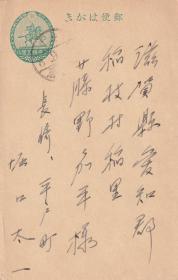 郵便はがき
滋賀縣愛知郡
稲枝村稲里
藤野名平様
長崎、平戸町
堀口太一